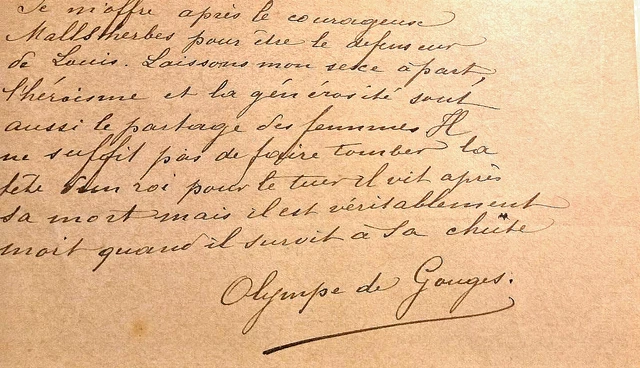 Je m'offre après le courageuse
Mallsherbes pour être le defenseur
de Louis. Laissons mon sexe à part,
l'héroisme et la générosité sont
aussi le partage des femmes Il
ne suffit pas de faire tomber la
tête d'un roi pour le tuer il vit après
sa mort mais il est véritablement
mort quand il survit à sa chûte
Olympe de Gouges.